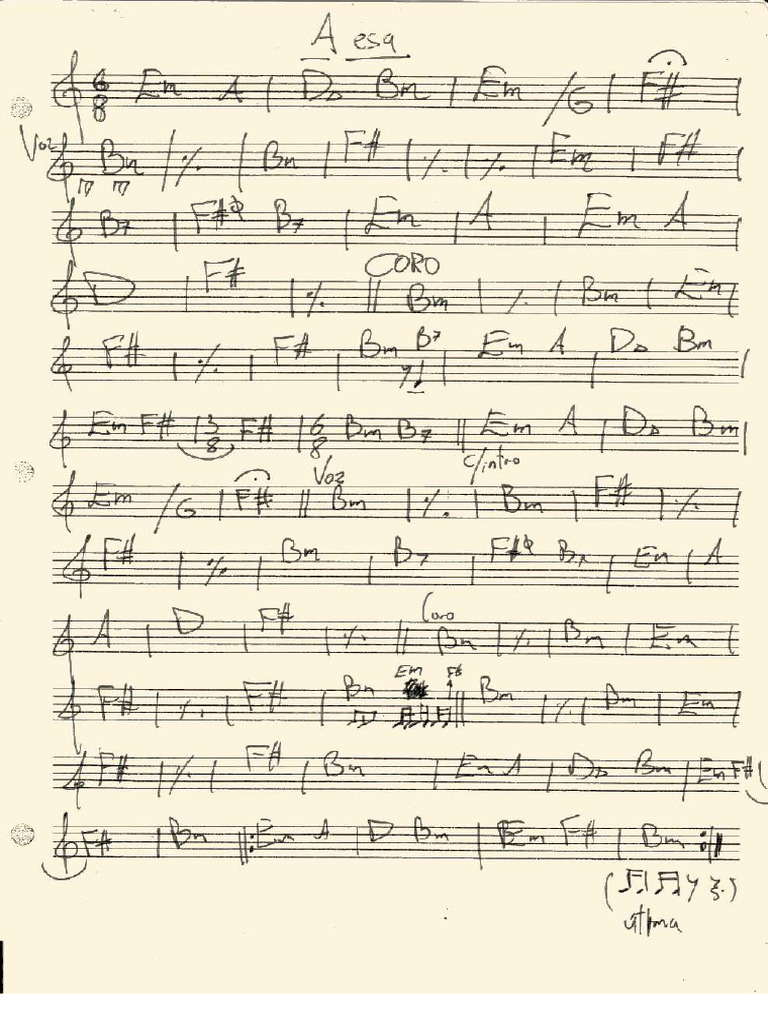 A esa
6/8 Em A | D Bm | Em /G | F# |
Voz
Bm | ٪ | Bm | F# | ٪ | ٪ | Em | F# |
B7 | F# B7 | Em | A | Em A
D | F# | ٪ || CORO Bm | ٪ | Bm | Em |
F# | ٪ | F# | Bm B7 | Em A | D Bm |
Em F# | 3/8 F# | 6/8 Bm B7 || Em A | D Bm |
c/intro
Em /G | F# || Voz Bm | ٪ | Bm | F# | ٪ |
F# | ٪ | Bm | B7 | F# B7 | Em | A
A | D | F# | ٪ || Coro Bm | ٪ | Bm | Em |
F# | ٪ | F# | Bm Em F# || Bm | ٪ | Bm | Em |
F# | ٪ | F# | Bm | Em A | D Bm | Em F#
F# | Bm ||: Em A | D Bm | Em F# | Bm :||
( )